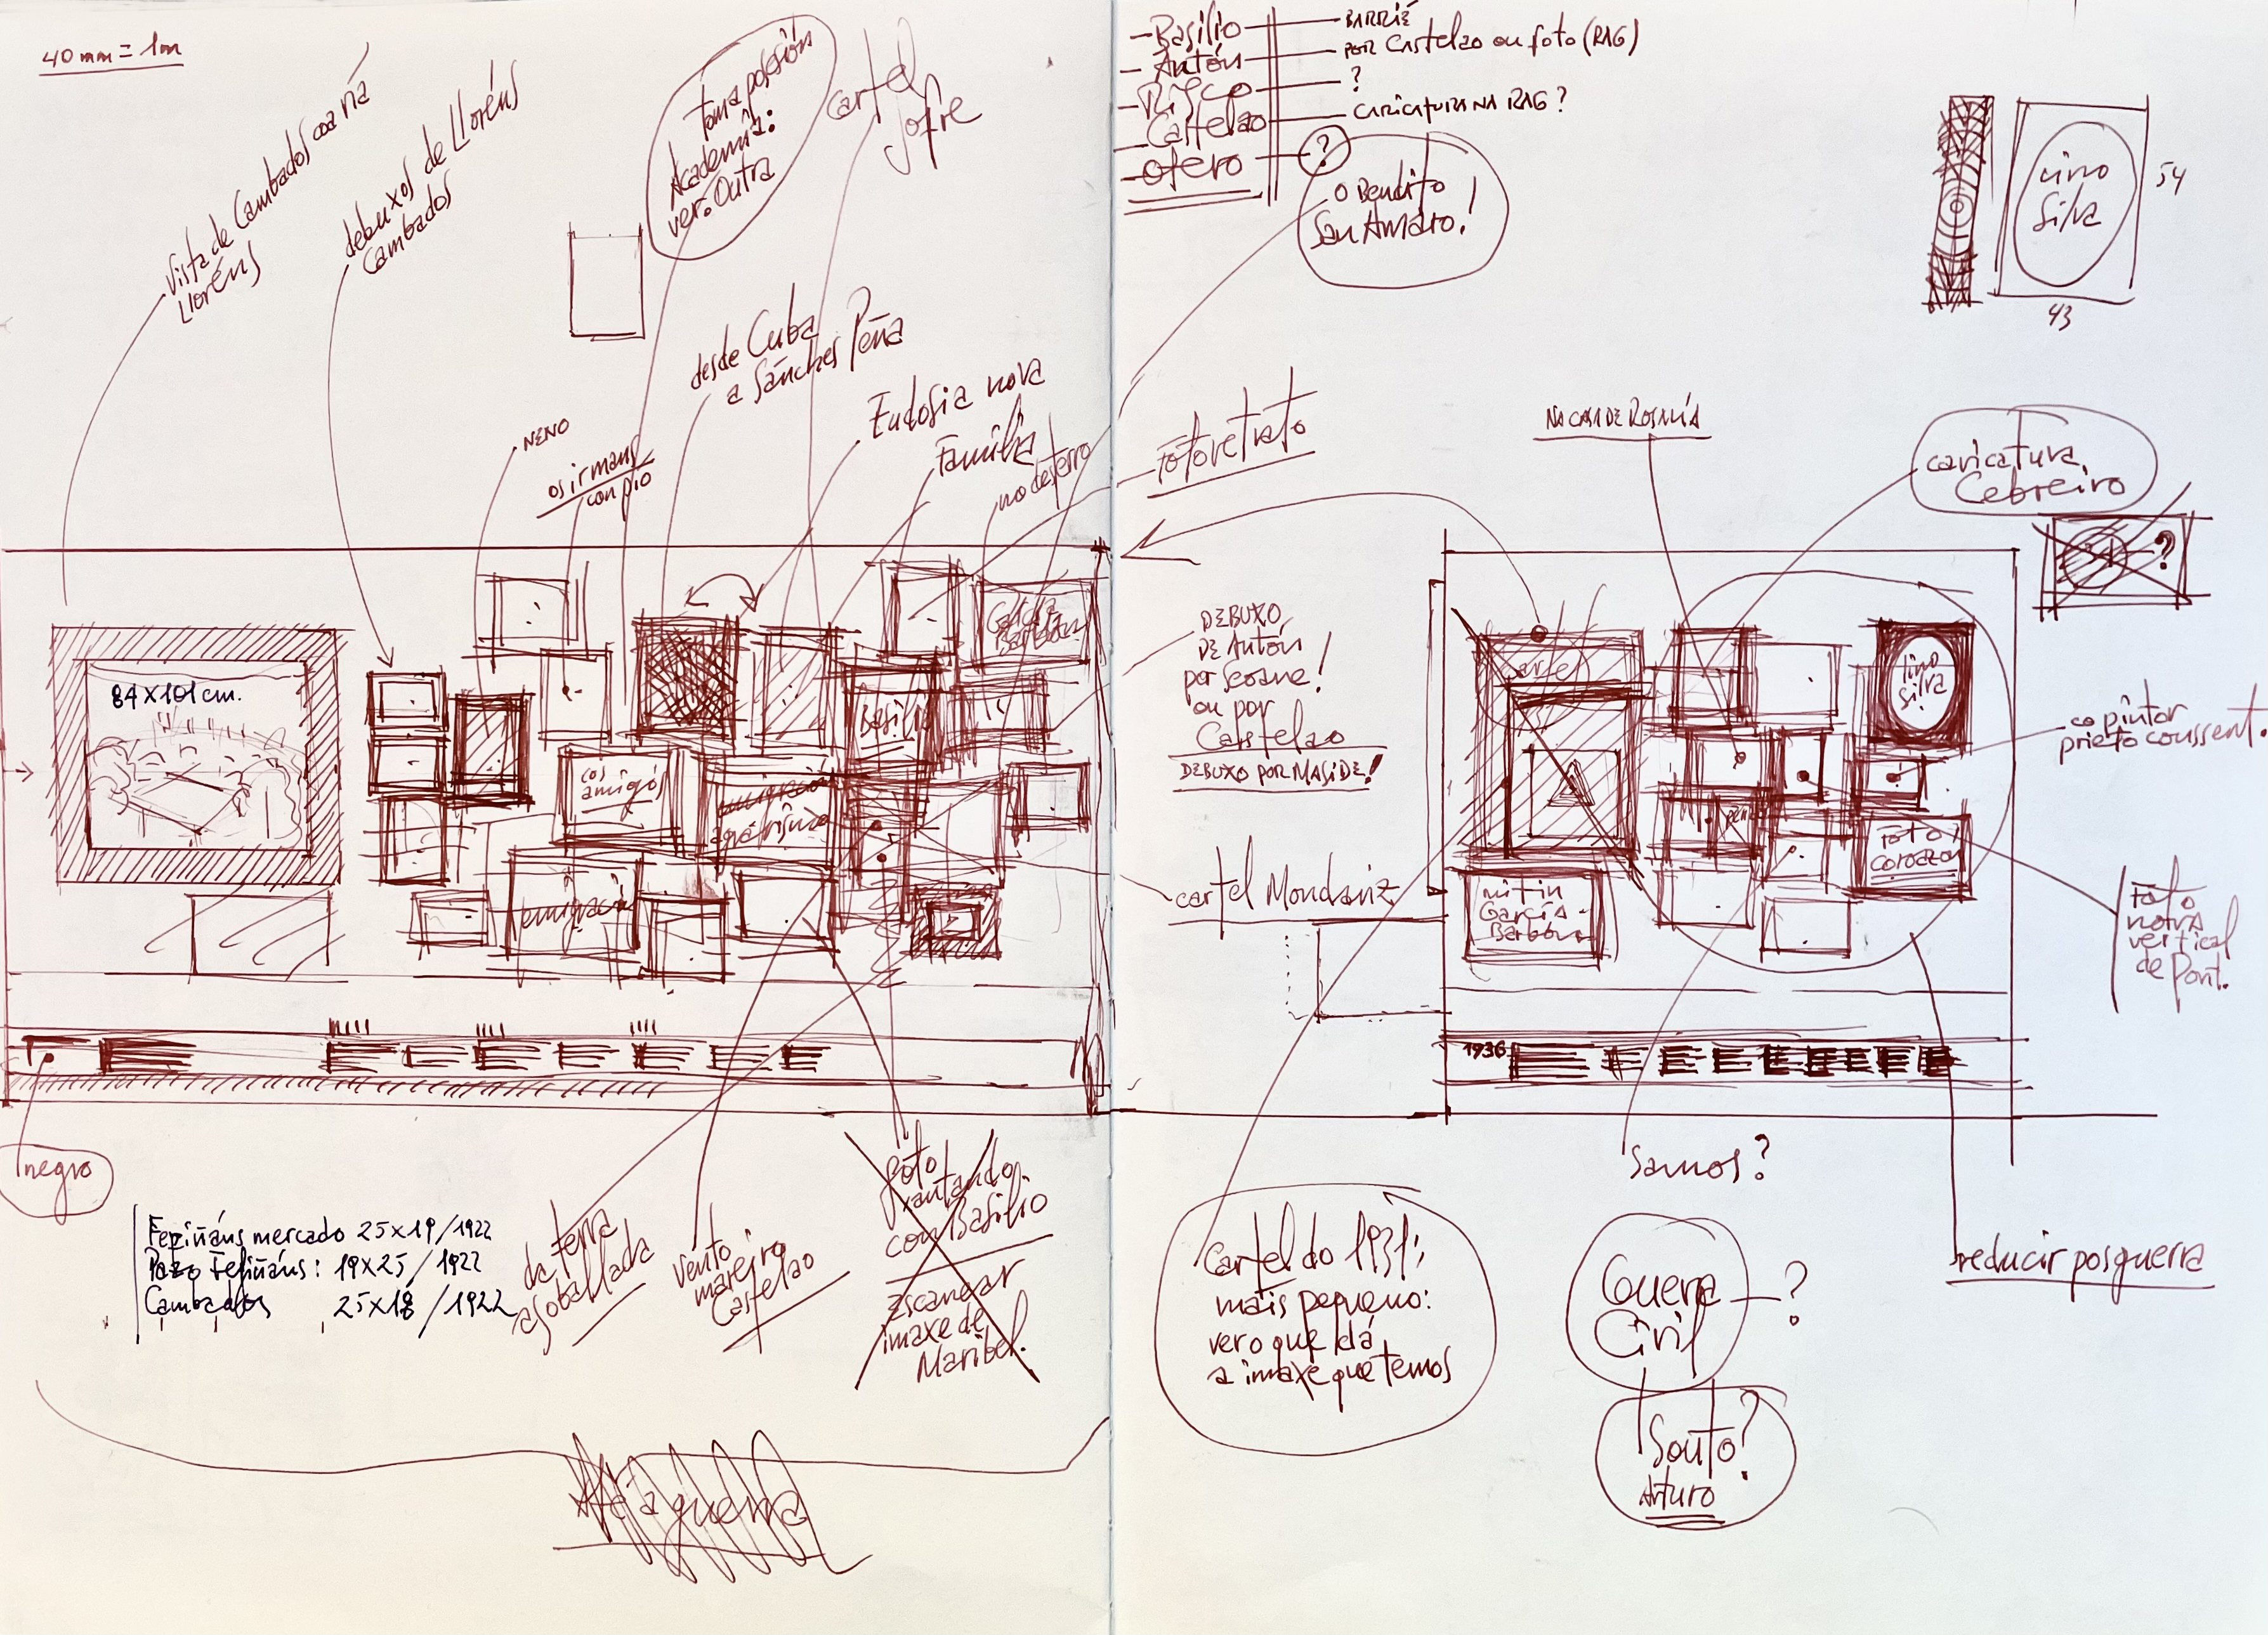 40 mm = 1m
vista de Cambados coa ría
Lloréns
debuxos de Lloréns
Cambados
toma posesión
Academia:
ver. Outra
cartel
Jofre
desde Cuba
a Sánches Peña
NENO
os irmans
con pío
Eudosia nova
Familia
no desterro
84 x 101 cm.
cos
amigos
Basilio
García
Barbón
emigración
agrarismo
emigración
negro
Fefiñáns mercado 25x19/1922
Pazo Fefiñáns: 19x25/1922
Cambados 25x18/1922
da terra
asoballada
vento
mareiro
Castelao
foto
xantando
con Basilio
Escanear
imaxe de
Maribel.
Ata a guerra
Basilio BARRIÉ
Antón POR Castelao ou foto (RAG)
Risco ?
Castelao CARICATURA NA RAG?
Otero ?
O Bendito
San Amaro!
lino
silva
54
43
Fotorretrato
NA CASA DE ROSALÍA
caricatura
Cebreiro
?
DEBUXO
DE Antón
por Seoane!
ou por
Castelao
DEBUXO POR MASIDE!
cartel Mondariz
cartel
lino
silva
mitin
García
Barbón
Foto
Corazón
co pintor
prieto coussent.
Foto
noiva
vertical
de Pont.
1936
Samos?
Cartel do 1931;
mais pequeno:
ver o que dá
a imaxe que temos
Guerra
Civil
?
Souto?
Arturo
reducir posguerra